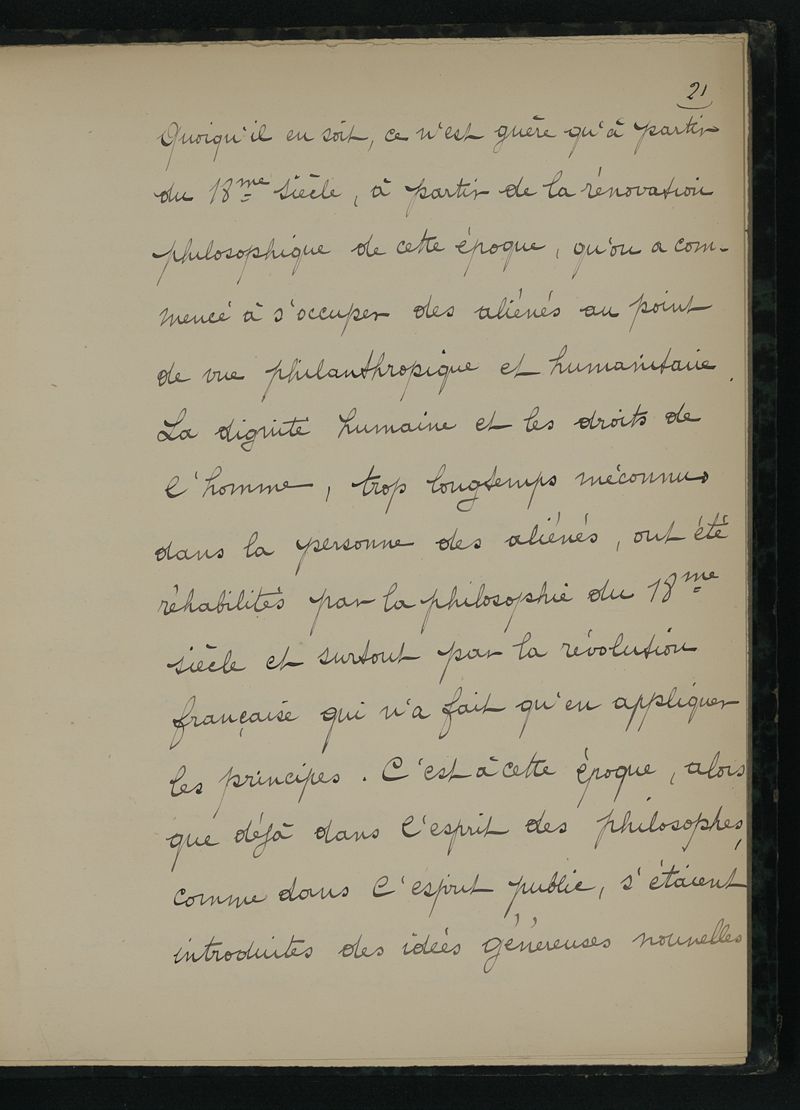 21
Quoiqu'il en soit, ce n'est guère qu'à partir
du 18me siècle, à partir de la rénovation
philosophique de cette époque, qu'on a com-
mencé à s'occuper des aliénés au point
de vue philanthropique et humanitaire.
La dignité humaine et les droits de
l'homme, trop longtemps méconnus
dans la personne des aliénés, ont été
réhabilités par la philosophie du 18me
siècle et surtout par la révolution
française qui n'a fait qu'en appliquer
les principes. C'est à cette époque, alors
que déjà dans l'esprit des philosophes,
comme dans l'esprit public, s'étaient
introduites des idées généreuses nouvelles